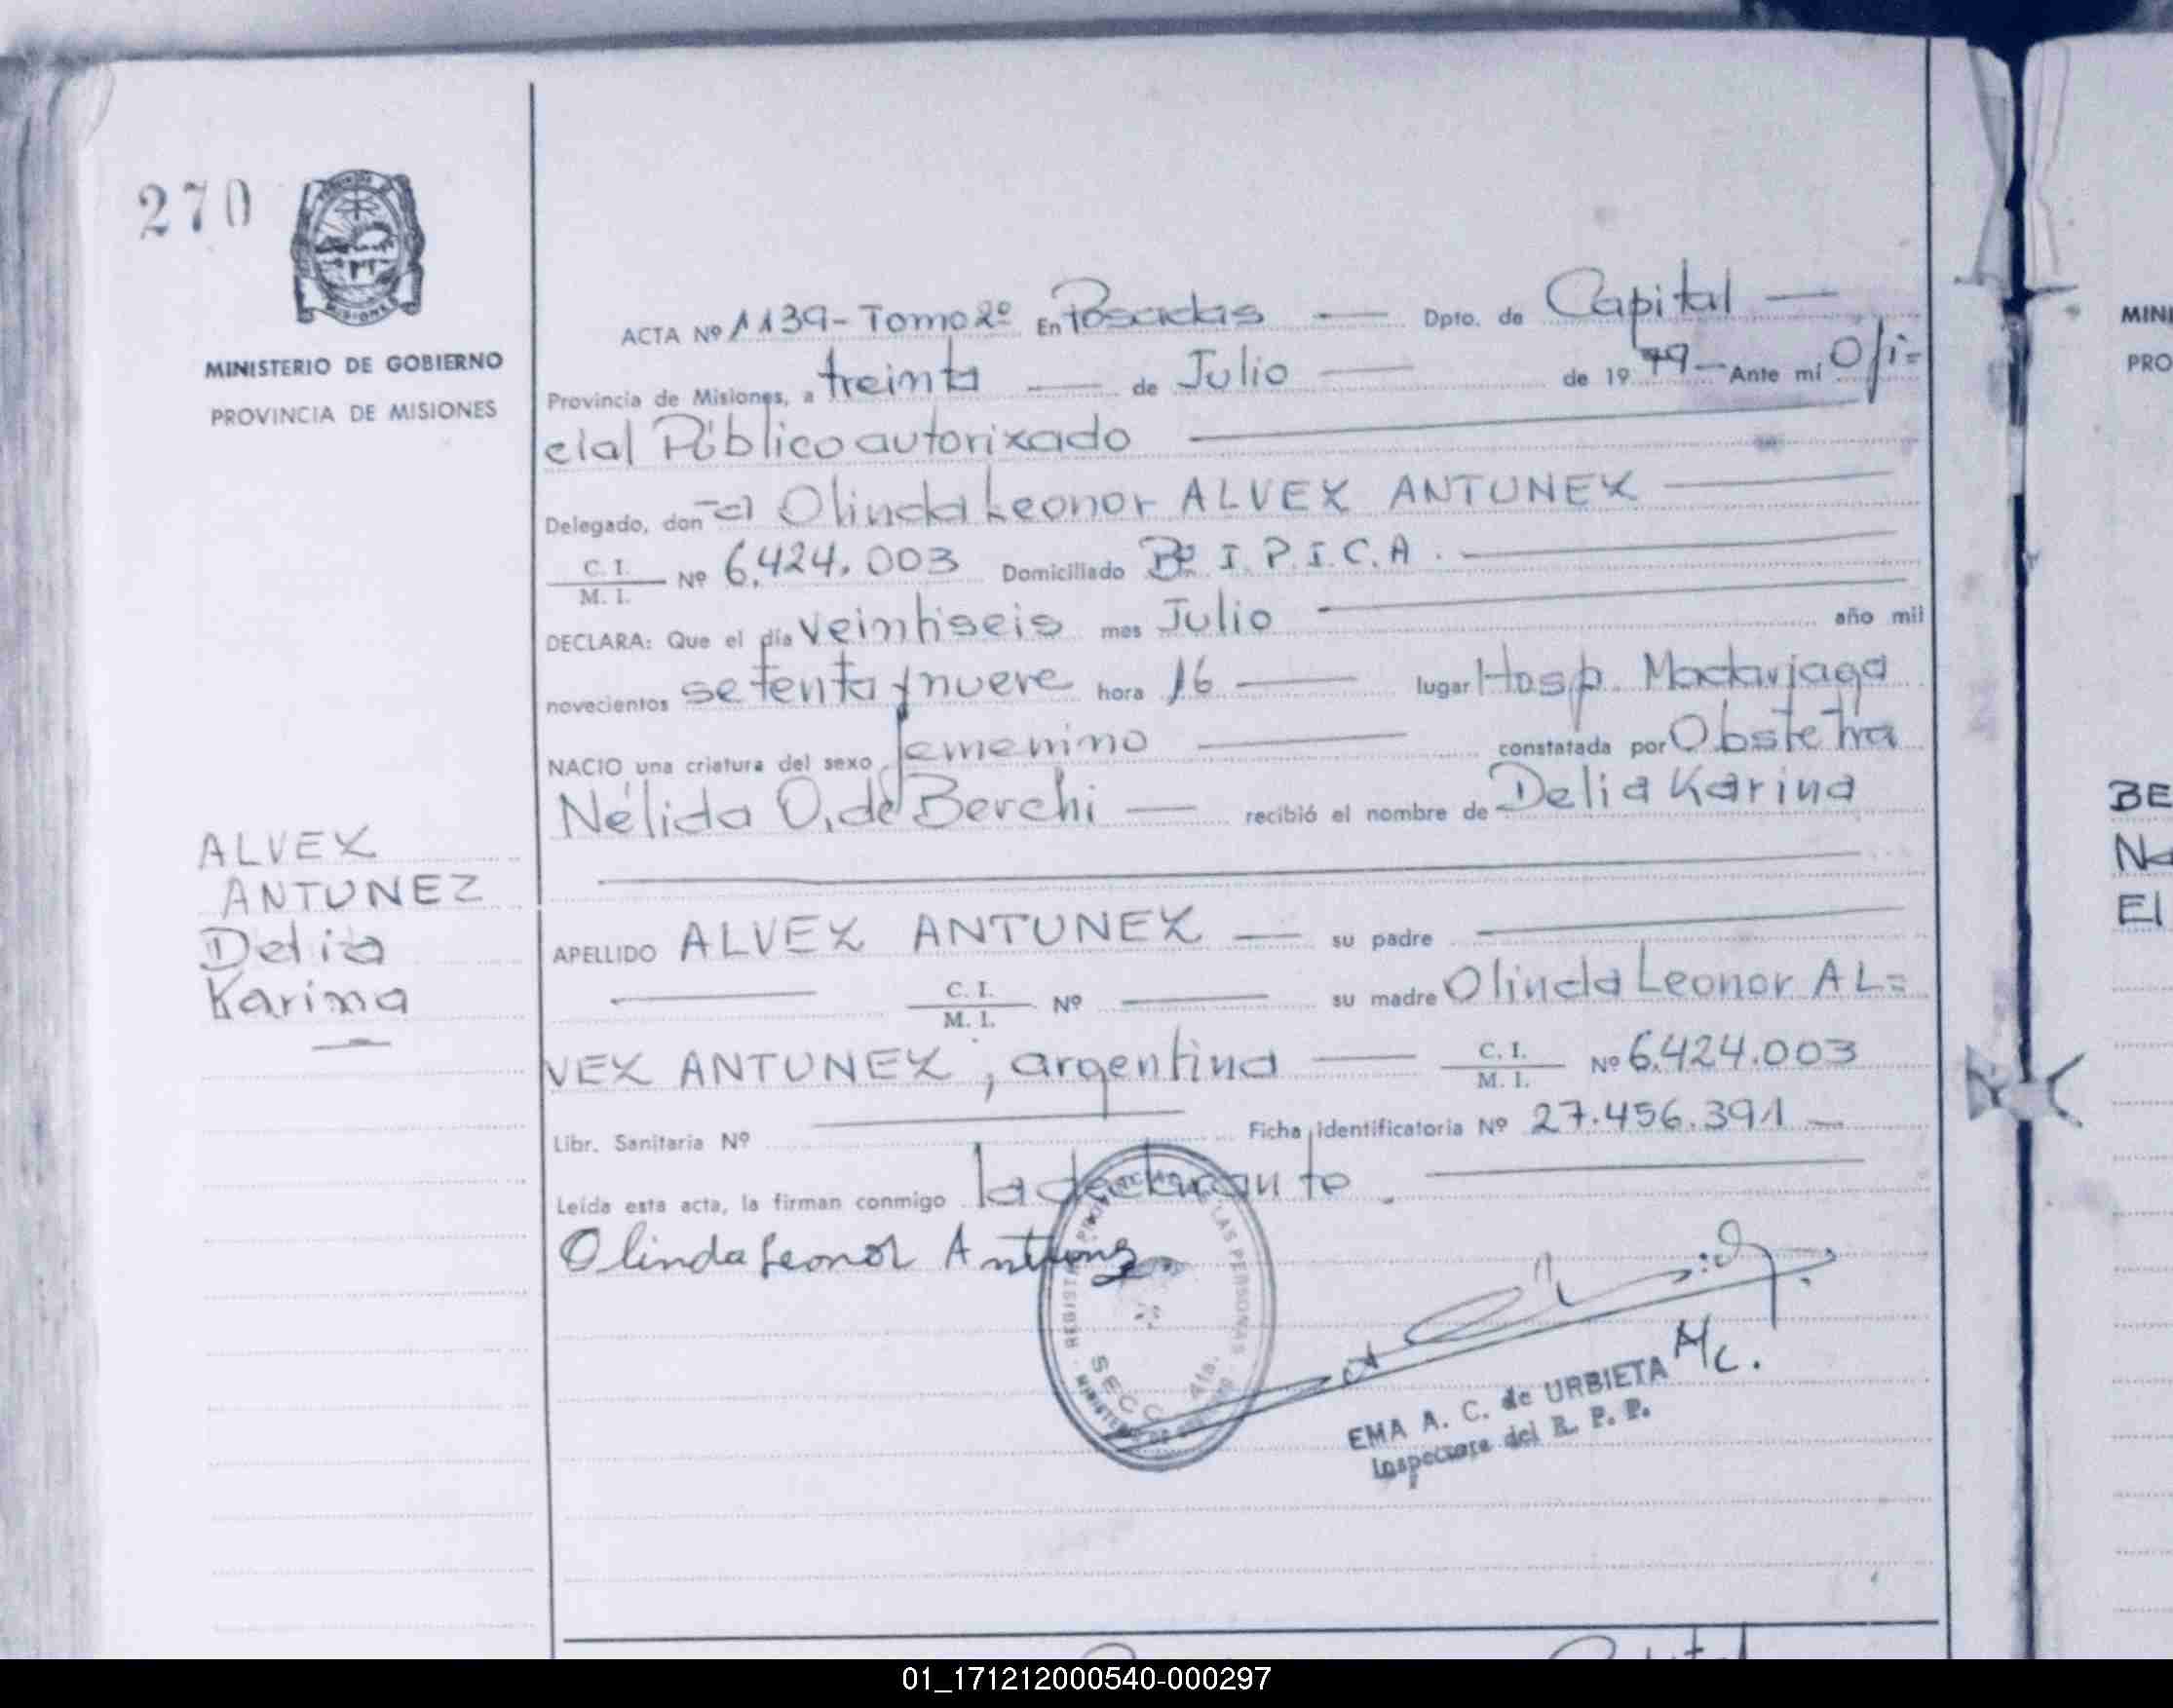 270
MISIONES
MINISTERIO DE GOBIERNO
PROVINCIA DE MISIONES
ACTA Nº 1139- Tomo 2º En Posadas — Dpto. de Capital —
Provincia de Misiones, a treinta — de Julio — de 19 79 — Ante mi Ofi=
cial Público autorizado
Delegado, don -a Olinda Leonor ALVEZ ANTUNEZ
C. I.
M. I. Nº 6.424.003 Domiciliado Bº I.P.I.C.A.
DECLARA: Que el día veintiseis mes Julio — año mil
novecientos setenta y nueve hora 16 — lugar Hosp. Madariaga
NACIO una criatura del sexo femenino — constatada por Obstetra
Nélida O. de Berchi — recibió el nombre de Delia Karina
ALVEZ
ANTUNEZ
Delia
Karina
APELLIDO ALVEZ ANTUNEZ — su padre —
— C. I.
M. I. Nº — su madre Olinda Leonor AL=
VEZ ANTUNEZ, argentina — C. I.
M. I. Nº 6.424.003
Libr. Sanitaria Nº — Ficha Identificatoria Nº 27.456.391 —
Leída esta acta, la firman conmigo la declarante.
Olinda Leonor Antunez
REGISTRO PROVINCIAL DE LAS PERSONAS
SECC
MINISTERIO DE GOBIERNO
M/c.
EMA A. C. de URBIETA
Inspectora del R. P. P.
MINI
PRO
BE
El
01_171212000540-000297